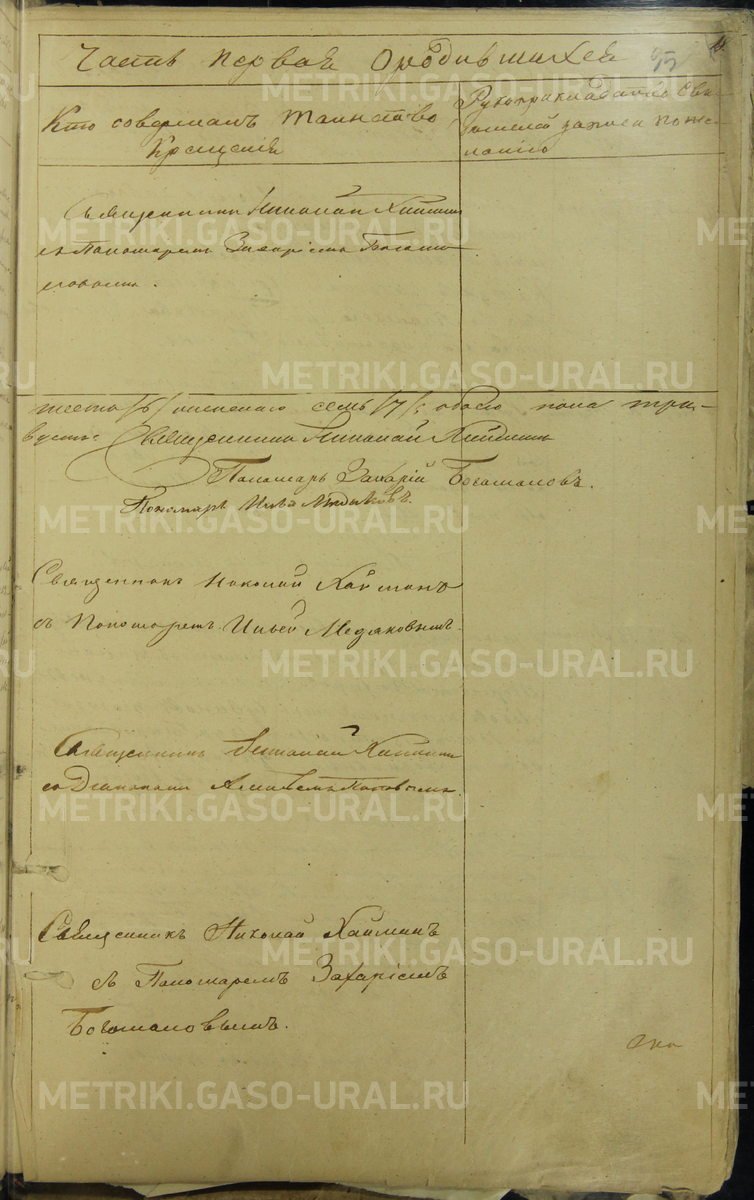 Часть первая о родившихся
17
Кто совершалъ таинство
Крещенія
Рукоприкладство Сви
записи по же
ланію
Священникъ Николай Хайминъ
съ Пономаремъ Захаріемъ Богома
ловымъ.
шесть /6/ женскаго семь /7/; обоего пола три-
Священникъ Николай Хайминъ
Пономарь Захарій Богомаловъ.
Пономарь Илья Медяковъ.
Священникъ Николай Хайминъ
съ Пономаремъ Ильей Медяковымъ.
Священникъ Николай Хайминъ
со Діакономъ Поповымъ
Священникъ Николай Хайминъ
съ Пономаремъ Захаріемъ
Богомаловымъ.
METRIKI.GASO-URAL.RU